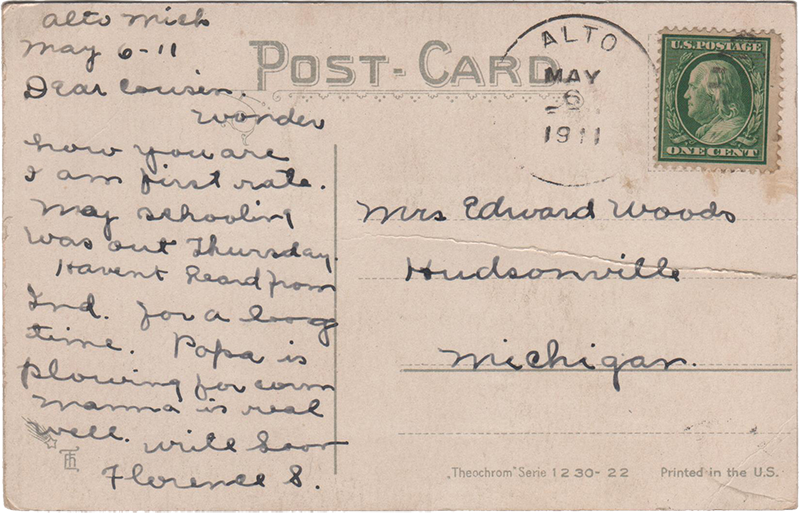 Alto Mich
May 6-11
Dear Cousin.
Wonder
how you are
I am first rate.
May schooling
was out Thursday.
Havent heard from
Ind. for a long
time. Papa is
plowing for corn
Mamma is real
well. write soon
Florence S.
POST-CARD
ALTO
MAY
6
1911
U.S. POSTAGE
ONE CENT
Mrs Edward Woods
Hudsonville
Michigan.
"Theochrom" Serie 1230-22
Printed in the U.S.